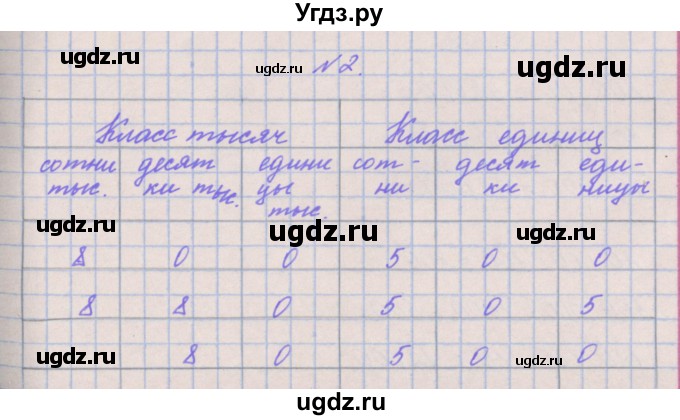 Угдз.ру
ugdz.ru ugdz.ru №2. ugdz.ru
Класс тысяч Класс единиц
сотни десят едини сот- десят еди-
тыс. ки тыс. цы ни ки ницы
тыс.
ugdz.ru ugdz.ru ugdz.ru
8 0 0 5 0 0
8 8 0 5 0 5
ugdz.ru 8 0 5 0 ugdz.ru 0
ugdz.ru